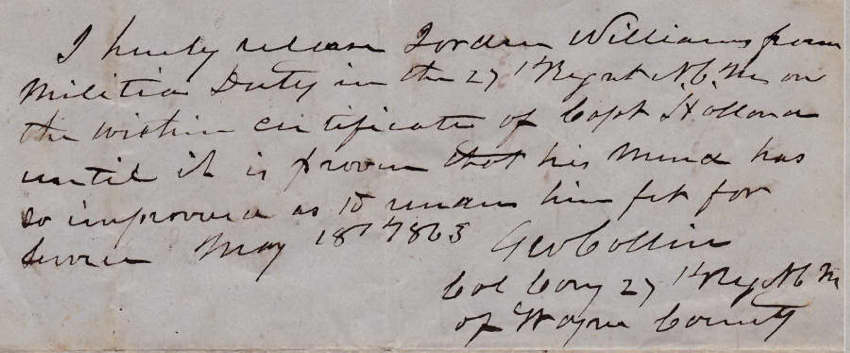 I hereby release Jorden Williams from
Militia Duty in the 27th Regt N.C. M. on
the within certificate of Capt Holland
until it is proven that his mind has
so improved as to render him fit for
Service May 18th 1863 Geo Collin
Col Comg 27th Reg N C M
of Wayne County